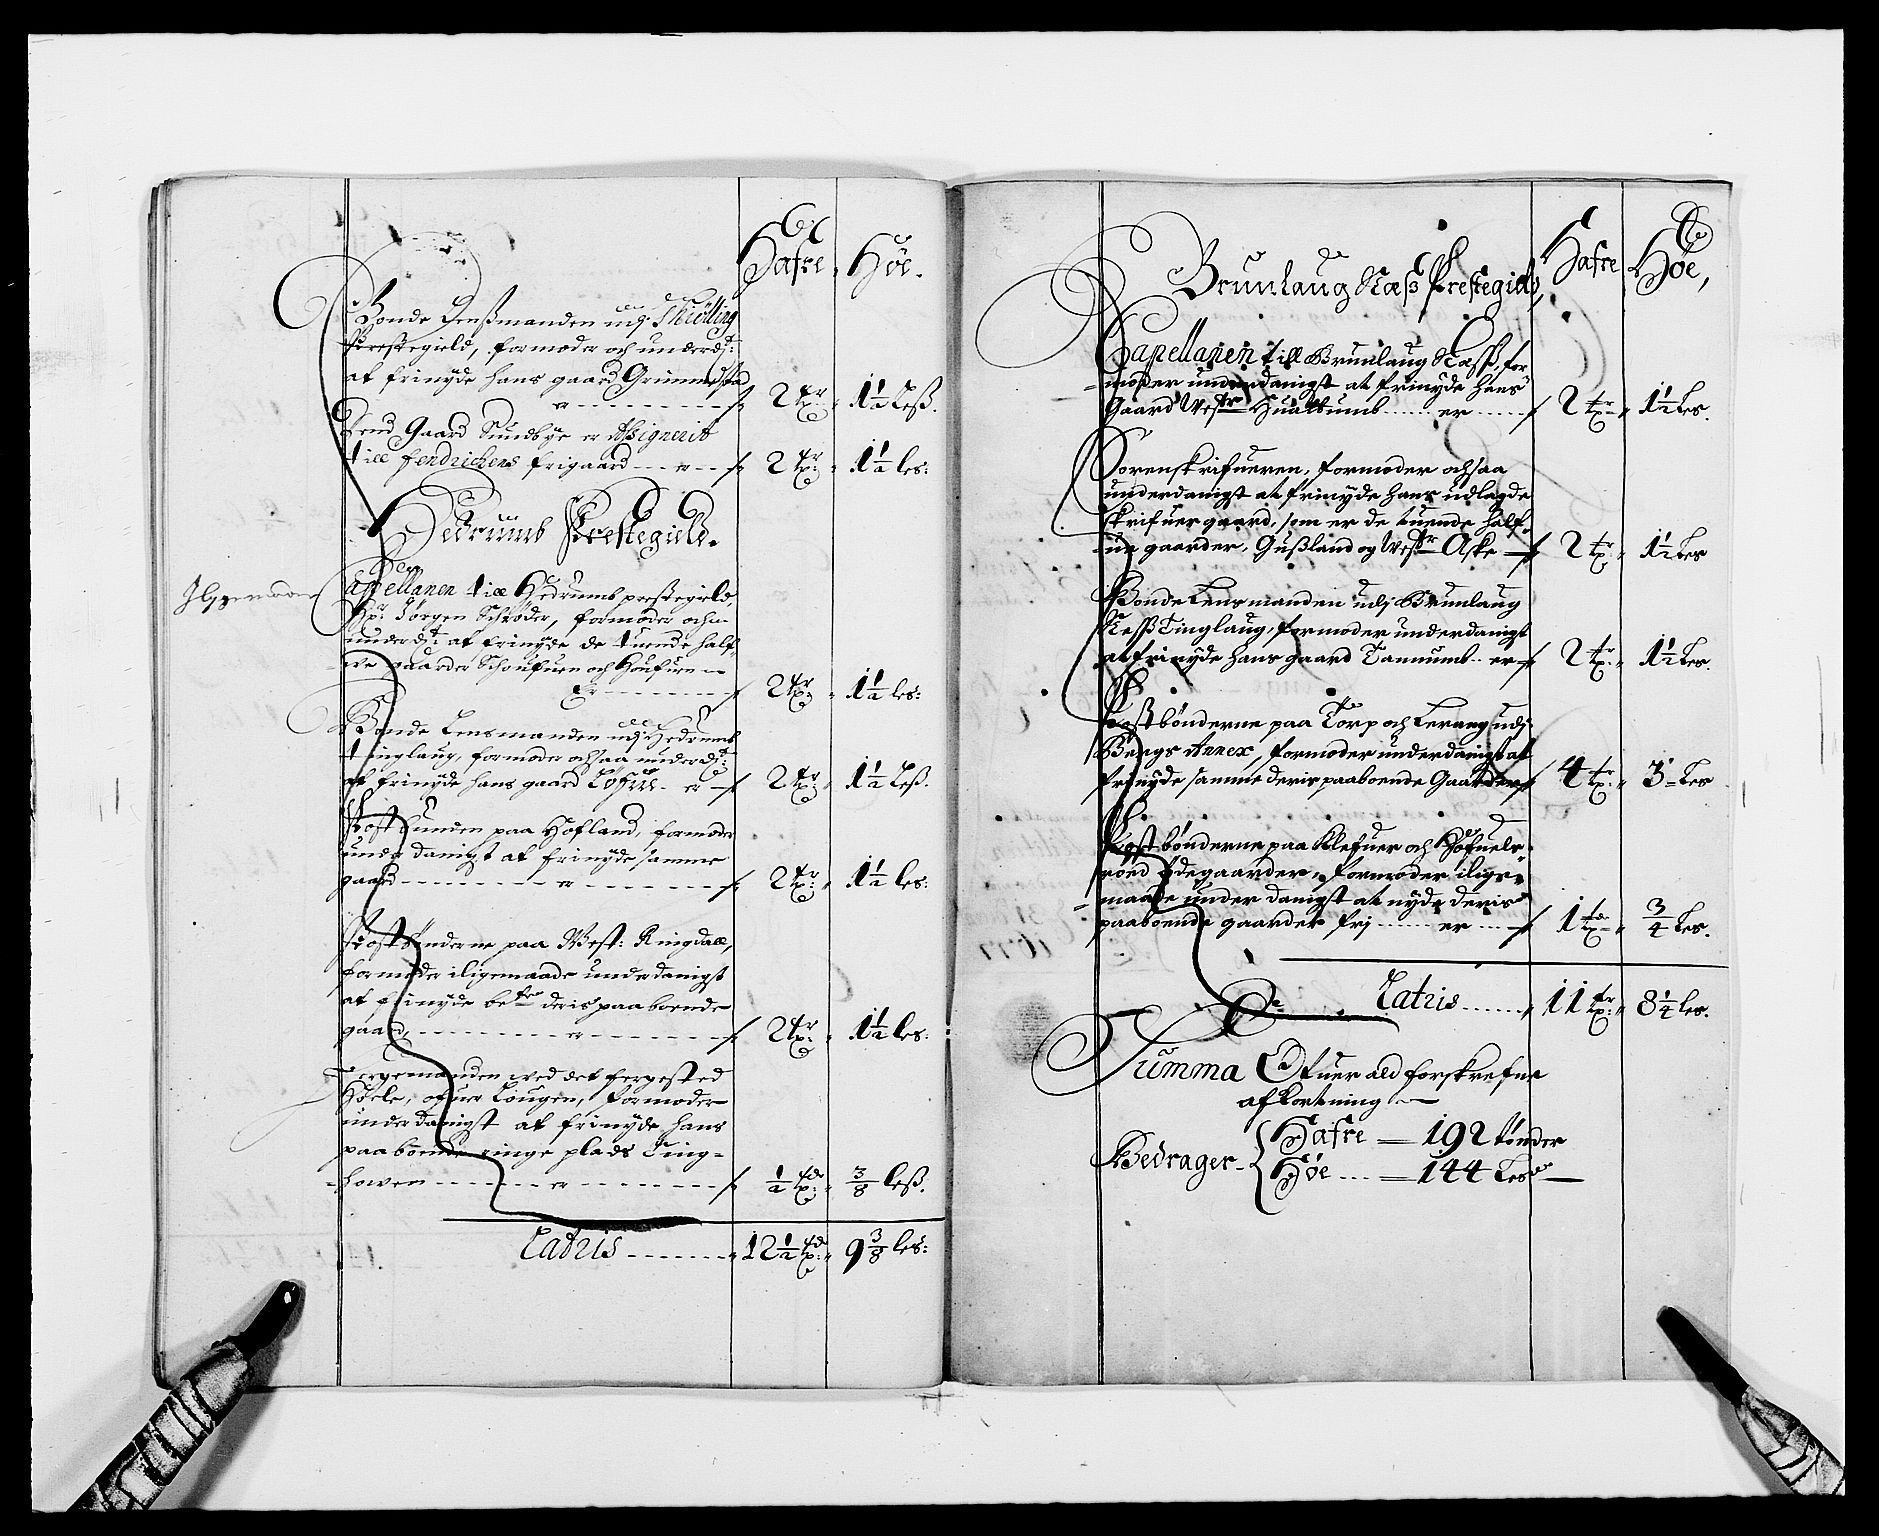 Hafre Høe.
Bonde Lensmanden udj Tiølling
Prestegield, formoder och underd:
at frinyde hans gaard Grimmestad
er 2 tdr: 1½ Less.
Dend Gaard Sundbye er Assignerit
till fendrichens frigaard er 2 tdr: 1½ les:
Hedrumb Prestegield.
Capellanen till Hedrumb prestegield,
Hr: Jørgen Schrøder, formoder och
underd: at frinyde de tuende half-
ue gaarder Schoufuen och Houfuen
er 2 tdr: 1½ les:
Bonde Lensmanden udj Hedrumb
tinglaug, formoder ochsaa underd:
at frinyde hans gaard er 2 tdr: 1½ Less.
Post bunden paa Hofland, formoder
underdanigst at frinyde samme
gaard er 2 tdr: 1½ les:
Postbønderne paa West: Ringdall,
formoder iligemaade underdanigst
at frinyde be:te deris paaboende
gaard, er 2 tdr: 1½ les:
Fergemanden wed det fergested
ofuer Lougen, formoder
underdanigst at frinyde hans
paaboende ringe plads Ting-
howen er ½ td: 3/8 less.
Latris 12½ td: 9 3/8 les:
Hafre Høe,
Brunlaug Næss Prestegield,
Capellanen till Brunlaug Næss, for-
moder underdanigst at frinyde hans
Gaard Westre Huatumb er 2 tdr: 1½ Les.
Sorenskrifueren, formoder ochsaa
underdanigst at frinyde hans udlagde
skrifuer gaard, som er de tuende half-
ue gaarder, Gussland og Westre Aske 2 tdr: 1½ Les
Bonde Lensmanden udj Brunlaug
Ness Tinglaug, formoder underdanigst
at frinyde hans gaard Tanumb er 2 tdr: 1½ Les.
Postbønderne paa Torp och Lerang udj
Bergs Annex, formoder underdanigst at
frinyde samme deris paaboende Gaarder 4 tdr: 3 Les
Postbønderne paa Klefuer och
røed Ødegaarder, formoder ilige-
maade underdanigst at nyde deris
paaboende gaarder frj er 1 td: 3/4 Les.
Latris 11 tdr: 8¼ les.
Summa Ofuer ald forskrefne
afkortning
Bedrager
Hafre 192 tønder
Høe 144 Less